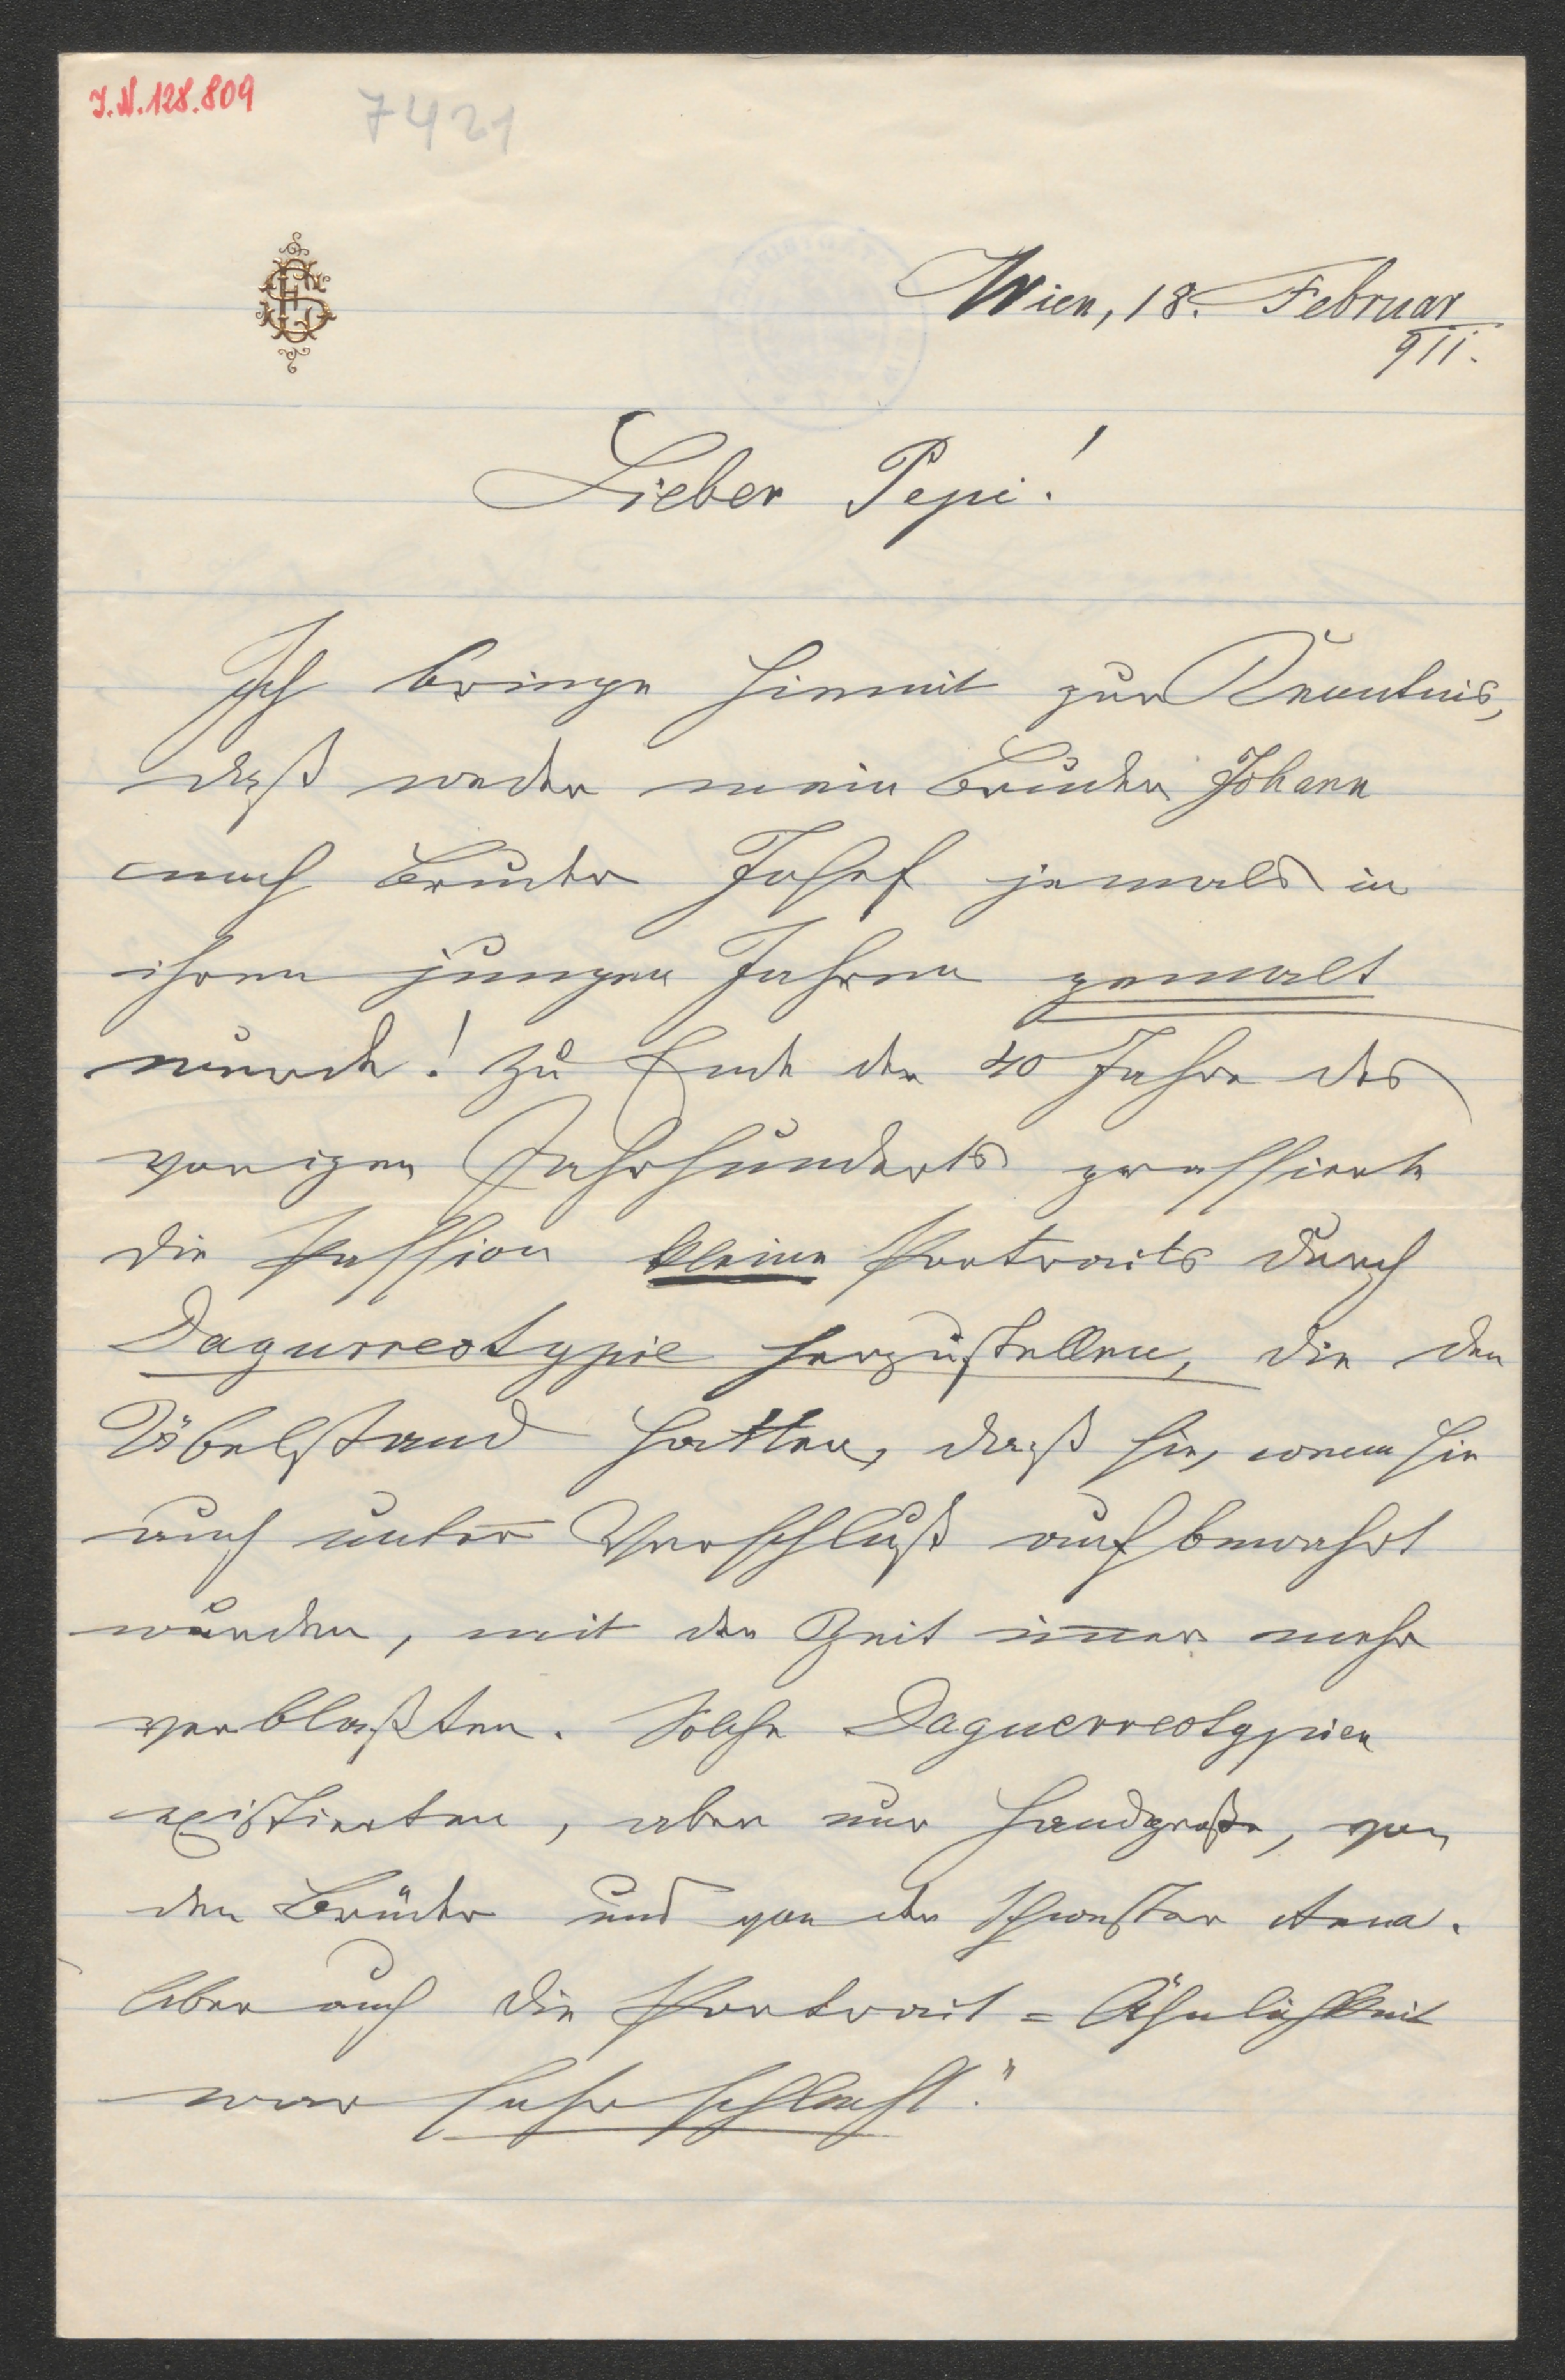 I.N. 128.809
7421
Wien, 18. Februar
911.
Lieber Pepi!
Ich bringe hiemit zur Kenntnis,
daß weder mein Bruder Johann
noch Bruder Josef jemals in
ihren jungen Jahren gemalt
wurde! Zu Ende der 40 Jahre des
vorigen Jahrhunderts grassierte
die Passion kleine Portraits durch
Dagurreotypie herzustellen, die den
Übelstand hatten, daß sie, wenn sie
auch unter Verschluß aufbewahrt
wurden, mit der Zeit immer mehr
verblaßten. Solche Daguerreotypien
existierten, aber nur handgroße, von
den Brüder und von der Schwester Anna.
Aber auch die Portrait=Ähnlichkeit
war sehr schlecht."